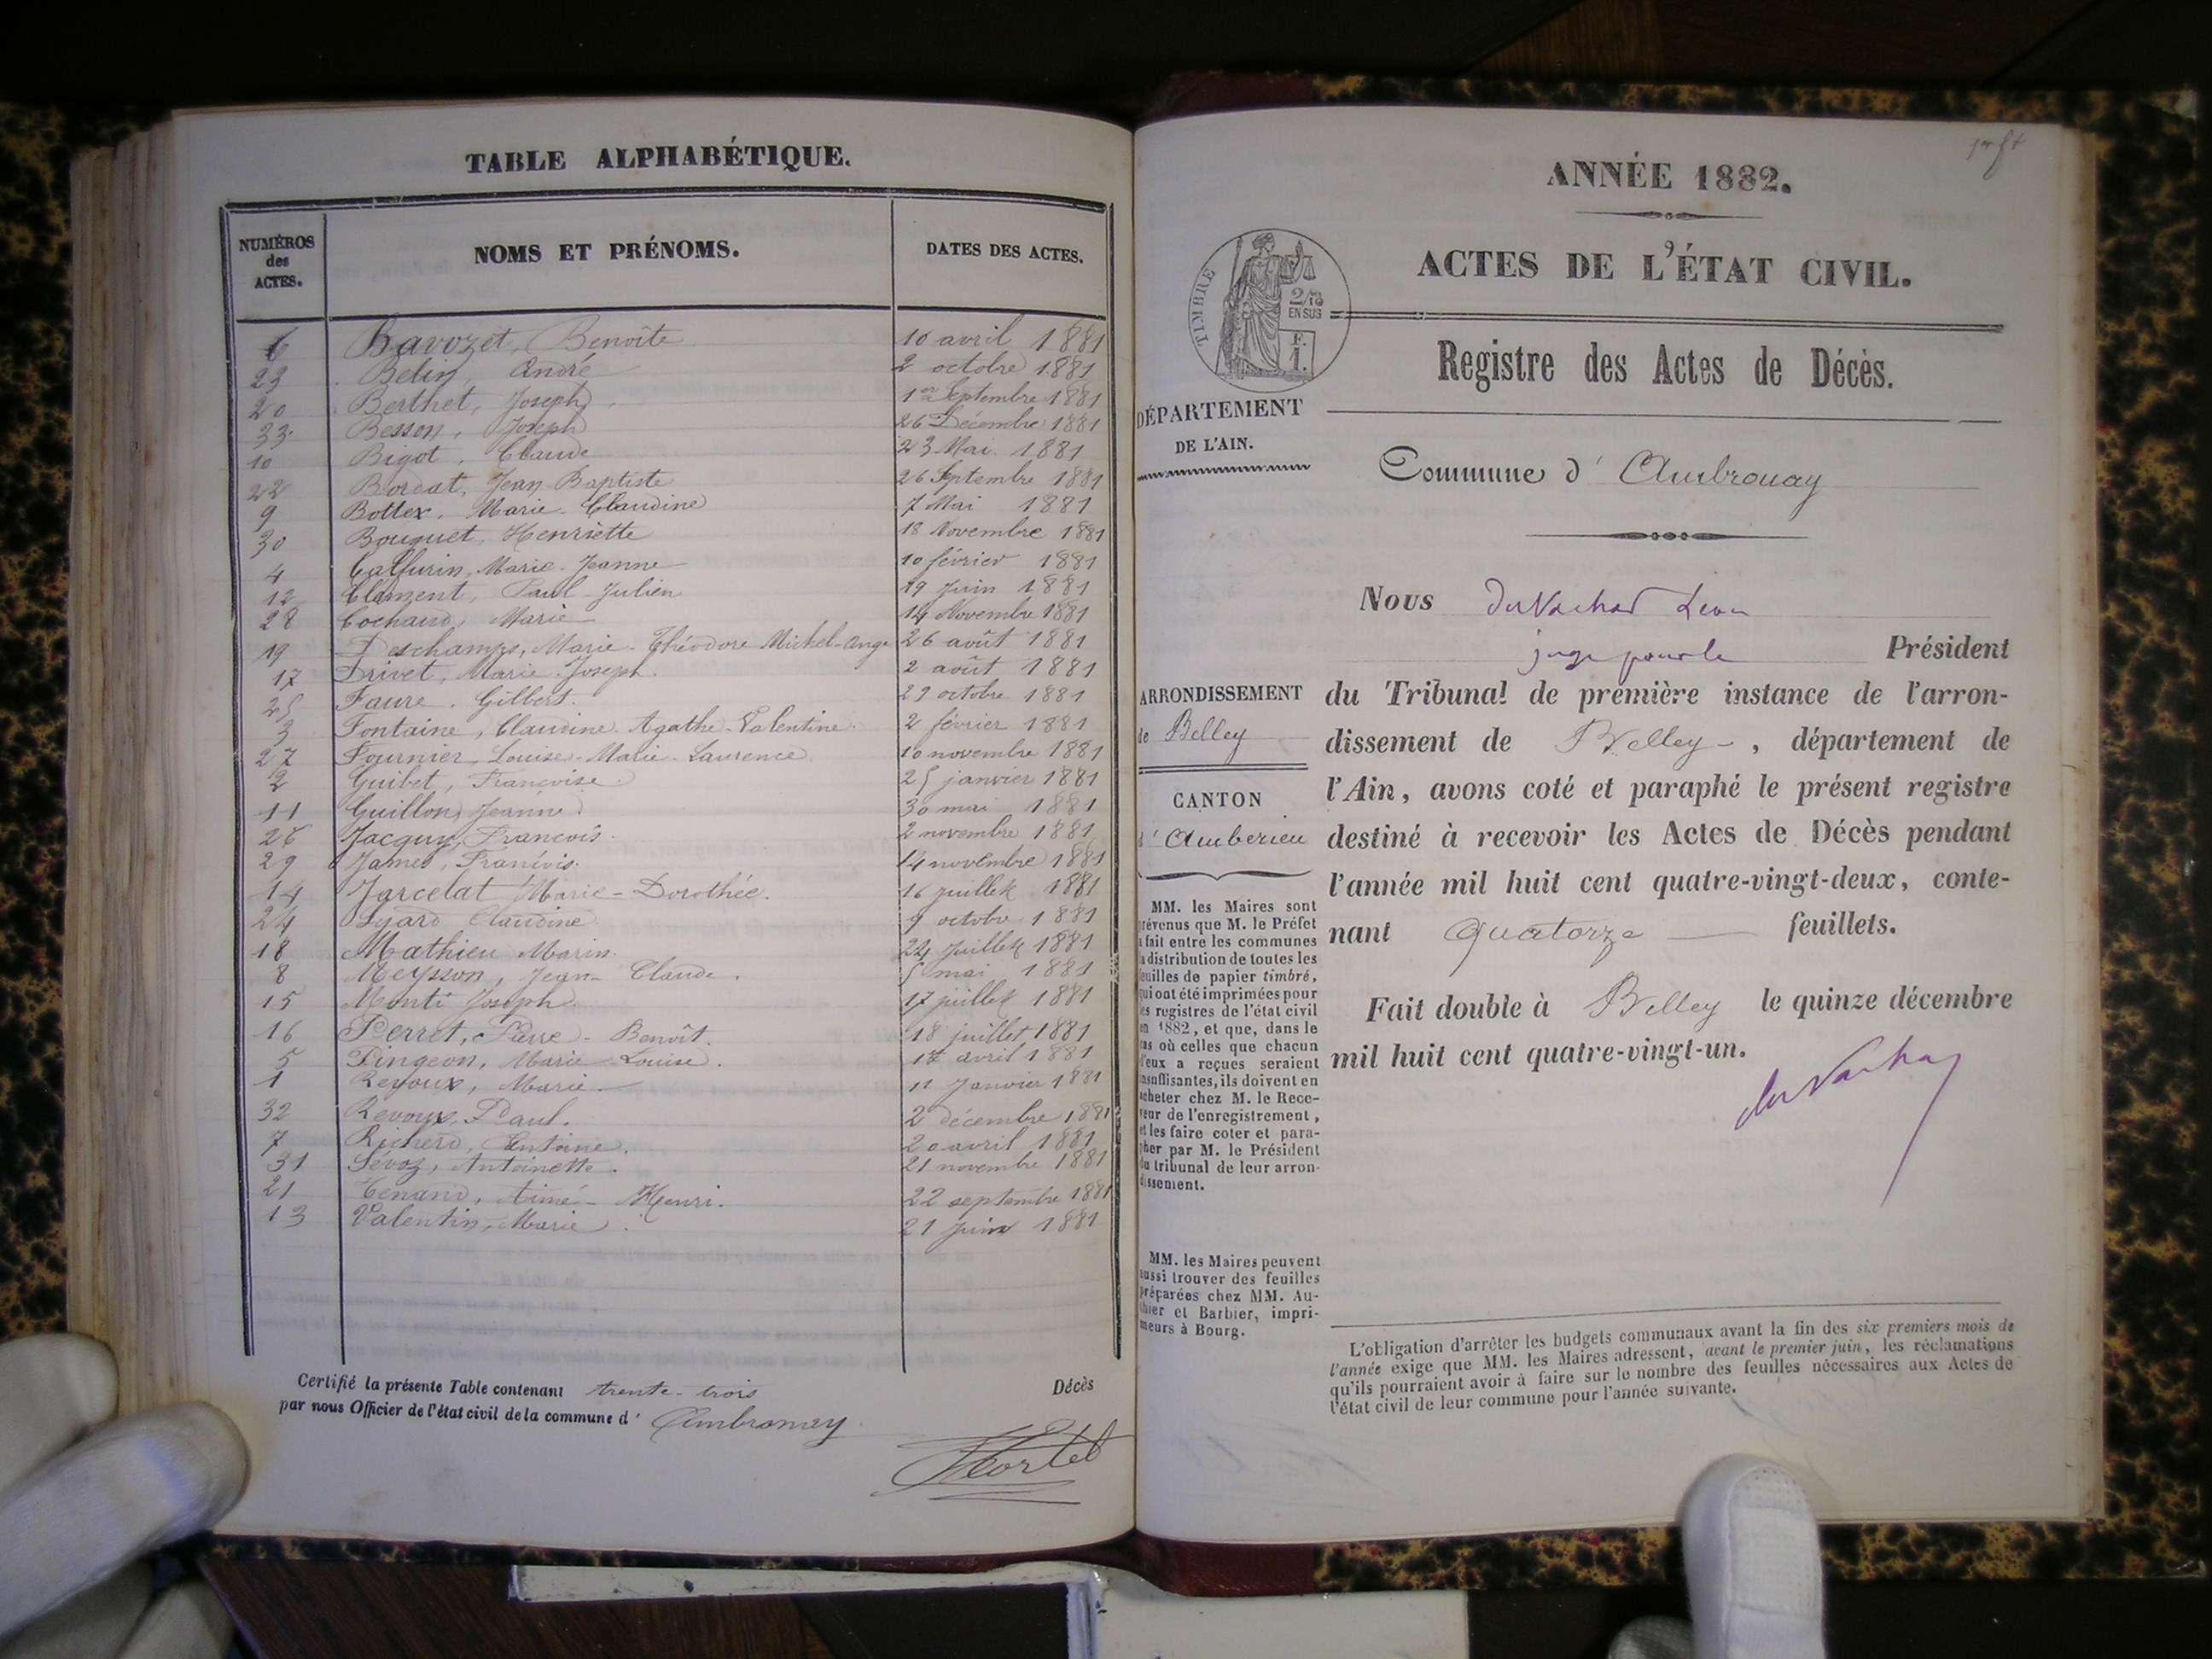 TABLE ALPHABÉTIQUE.
NUMÉROS des ACTES. NOMS ET PRÉNOMS. DATES DES ACTES.
6 Bavozet, Benoîte 10 avril 1881
23 Belin, André 2 octobre 1881
20 Berthet, Joseph 1er Septembre 1881
33 Besson, Joseph 26 Décembre 1881
10 Bigot, Claude 23 Mai 1881
22 Bordat, Jean-Baptiste 26 Septembre 1881
9 Bottex, Marie-Claudine 7 Mai 1881
30 Bouquet, Henriette 18 Novembre 1881
4 Marie-Jeanne 10 février 1881
12 Clément, Paul-Julien 19 Juin 1881
28 Cochard, Marie 14 Novembre 1881
19 Deschamps, Marie-Théodore Michel-Ange 26 août 1881
17 Drivet, Marie-Joseph. 2 août 1881
25 Faure, Gilbert. 29 octobre 1881
3 Fontaine, Claudine Agathe-Valentine 2 février 1881
27 Fournier, Louise-Marie-Laurence 10 novembre 1881
2 Guibet, Françoise 25 janvier 1881
11 Guillon, Jeanne 30 mai 1881
26 Jacquy, François 2 novembre 1881
29 James, François. 14 novembre 1881
14 Jarcelat Marie-Dorothée. 16 juillet 1881
24 Lyard Claudine 9 octobre 1881
18 Mathieu Marin. 24 Juillet 1881
8 Meysson, Jean-Claude. 5 mai 1881
15 Monti Joseph. 17 juillet 1881
16 Perret, Pierre-Benoît. 18 juillet 1881
5 Pingeon, Marie-Louise. avril 1881
1 Reyoux, Marie. 11 Janvier 1881
32 Revoux, Paul. 2 décembre 1881
7 Richerd, Antoine. 20 avril 1881
31 Sévoz, Antoinette. 21 novembre 1881
21 Tenand, Aimé-Henri. 22 septembre 1881
13 Valentin, Marie 21 Juin 1881
Certifié la présente Table contenant trente-trois Décès
par nous Officier de l'état civil de la commune d' Ambronay
ANNÉE 1882.
ACTES DE L'ÉTAT CIVIL.
TIMBRE
2/10
EN SUS
F.
1.
Registre des Actes de Décès.
DÉPARTEMENT
DE L'AIN.
Commune d' Ambronay
Nous DuVachat Léon
juge pour le Président
ARRONDISSEMENT
de Belley
CANTON
d' Amberieu
du Tribunal de première instance de l'arron-
dissement de Belley, département de
l'Ain, avons coté et paraphé le présent registre
destiné à recevoir les Actes de Décès pendant
l'année mil huit cent quatre-vingt-deux, conte-
nant Quatorze feuillets.
Fait double à Belley le quinze décembre
mil huit cent quatre-vingt-un.
MM. les Maires sont
prévenus que M. le Préfet
a fait entre les communes
la distribution de toutes les
feuilles de papier timbré,
qui ont été imprimées pour
les registres de l'état civil
en 1882, et que, dans le
cas où celles que chacun
d'eux a reçues seraient
insuffisantes, ils doivent en
acheter chez M. le Rece-
veur de l'enregistrement,
et les faire coter et para-
pher par M. le Président
du tribunal de leur arron-
dissement.
MM. les Maires peuvent
aussi trouver des feuilles
préparées chez MM. Au-
thier et Barbier, impri-
meurs à Bourg.
L'obligation d'arrêter les budgets communaux avant la fin des six premiers mois de
l'année exige que MM. les Maires adressent, avant le premier juin, les réclamations
qu'ils pourraient avoir à faire sur le nombre des feuilles nécessaires aux Actes de
l'état civil de leur commune pour l'année suivante.